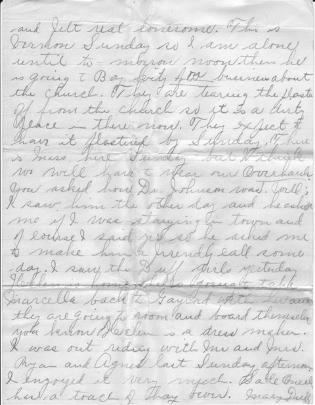 and felt real lonesome. This is
Vernon Sunday so I am alone
until to-morrow noon then he
is going to Bay City on business about
the church. They are tearing the plaster
off from the church so it is a dirty
place in there now. They expect to
have it plastered by Sunday. There
is Mass here Sunday but I think
we will have to wear our Overshoes
You asked how Dr. Johnson was. Well;
I saw him the other day and he asked
me if I was staying in town and
of course I said yes so he asked me
to make him a friendly call some
day. I saw the Duff girls yesterday
Marcella back to Gaylord with
they are going to room and board themselves
you know is a dress maker.
I was out riding with Mr and Mrs.
Ryan and Agnes last Sunday afternoon
I enjoyed it very much. Belle
has a touch of Hay Fever. Mary